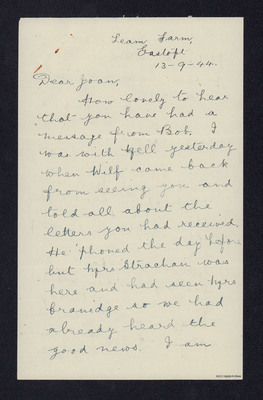 Leam Farm,
Eastoft
13-9-44.
Dear Joan,
How lovely to hear
that you have had a
message from Bob. I
was with Nell yesterday
when Wilf came back
from seeing you and
told all about the
letters you had received.
He 'phoned the day before
but Mrs Strachan was
here and had seen Mrs
Branidge so we had
already heard the
good news. I am